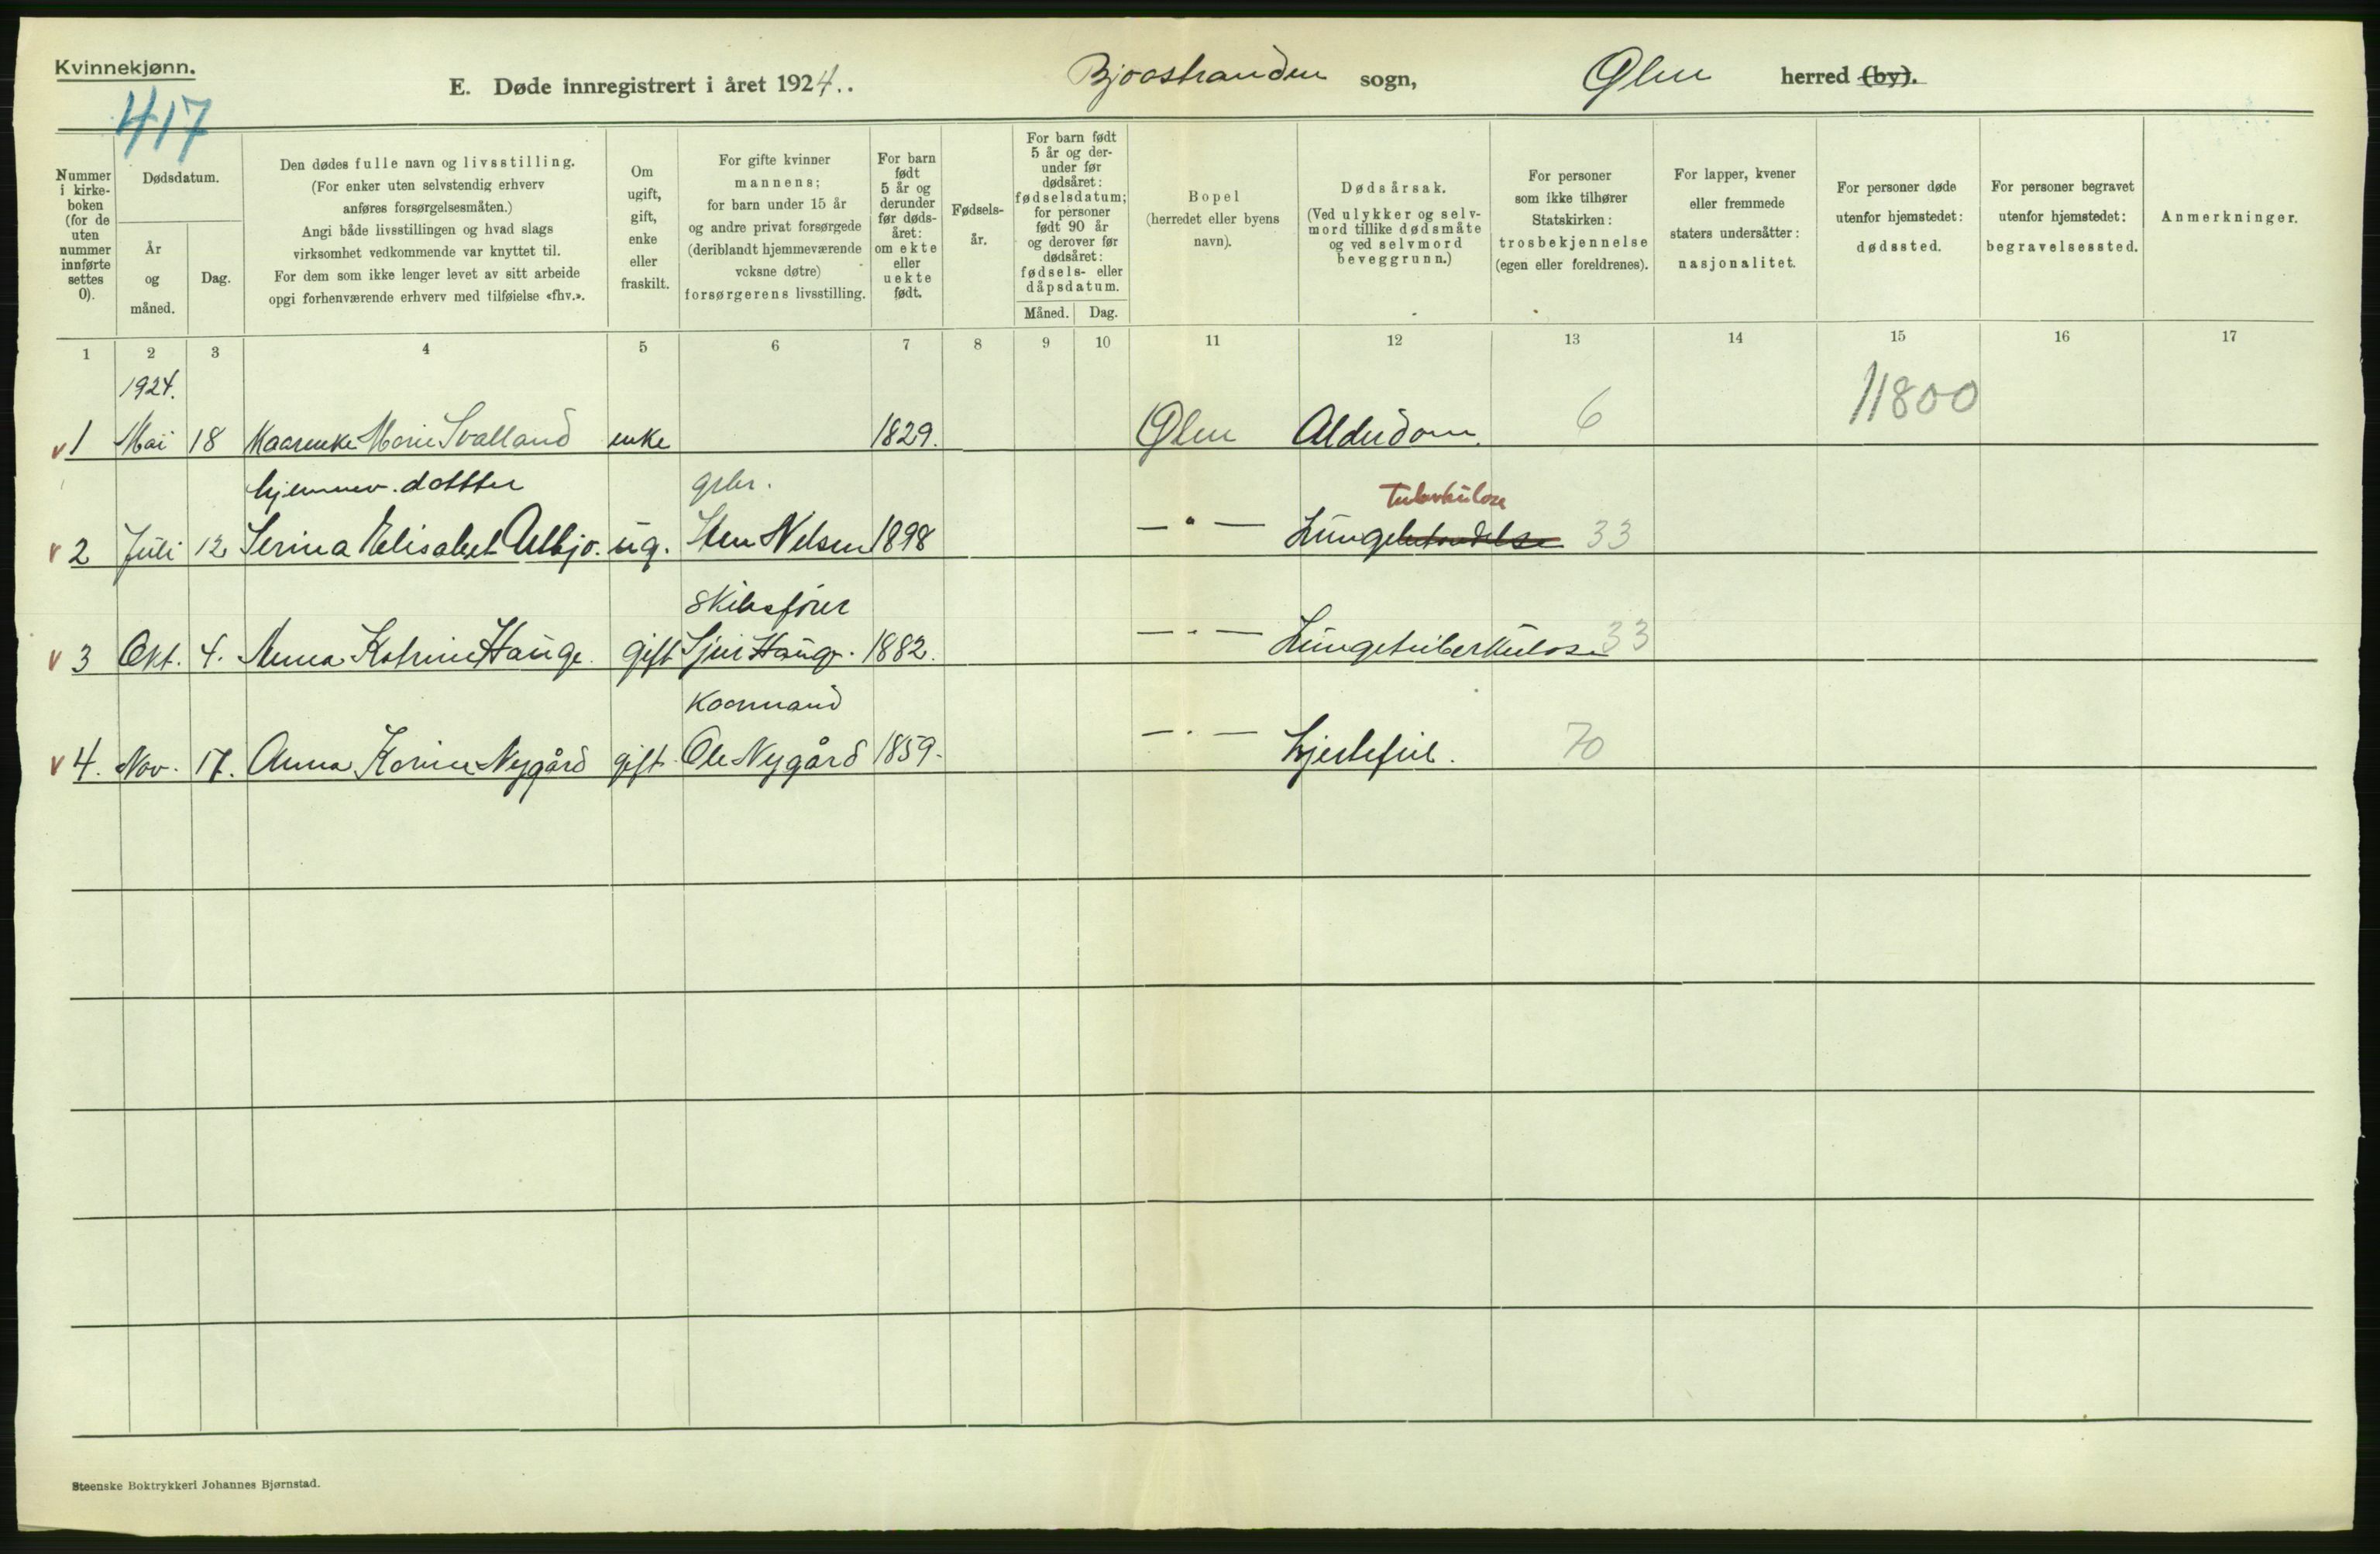 Kvinnekjønn.
E. Døde innregistrert i året 1924. Bjoastranden sogn, Ølen herred (by).
417
Nummer i kirkeboken (for de uten nummer innførte settes 0).
Dødsdatum.
År og måned.
Dag.
Den dødes fulle navn og livsstilling.
(For enker uten selvstendig erhverv
anføres forsørgelsesmåten.)
Angi både livsstillingen og hvad slags
virksomhet vedkommende var knyttet til.
For dem som ikke lenger levet av sitt arbeide
opgi forhenværende erhverv med tilføielse «fhv.».
Om
ugift,
gift,
enke
eller
fraskilt.
For gifte kvinner
mannens;
for barn under 15 år
og andre privat forsørgede
(deriblandt hjemmeværende
voksne døtre)
forsørgerens livsstilling.
For barn
født
5 år og
derunder
før døds-
året:
om ekte
eller
uekte
født.
Fødsels-
år.
For barn født
5 år og der-
under før
dødsåret:
fødselsdatum;
for personer
født 90 år
og derover før
dødsåret:
fødsels- eller
dåpsdatum.
Måned. Dag.
Bopel
(herredet eller byens
navn).
Dødsårsak.
(Ved ulykker og selv-
mord tillike dødsmåte
og ved selvmord
beveggrunn.)
For personer
som ikke tilhører
Statskirken:
trosbekjennelse
(egen eller foreldrenes).
For lapper, kvener
eller fremmede
staters undersåtter:
nasjonalitet.
For personer døde
utenfor hjemstedet:
dødssted.
For personer begravet
utenfor hjemstedet:
begravelsessted.
Anmerkninger.
1 2 3 4 5 6 7 8 9 10 11 12 13 14 15 16 17
1924.
11800
v 1 Mai 18 Marie Svalland enke 1829. Ølen Alderdom. 6
hjemmev. dotter gbr.
Tuberkulose
v 2 Juli 12 Serina Elisabet ug. Nilsen 1898 — " — Lungebetendelse 33
Skibsfører
v 3 Okt. 4. Anna Katrine Hauge. gift Hauge. 1882. — " — Lungetuberkulose 33
v 4. Nov. 17. Anna Karine Nygård gift Ole Nygård 1859. — " — hjertefeil. 70
Steenske Boktrykkeri Johannes Bjørnstad.